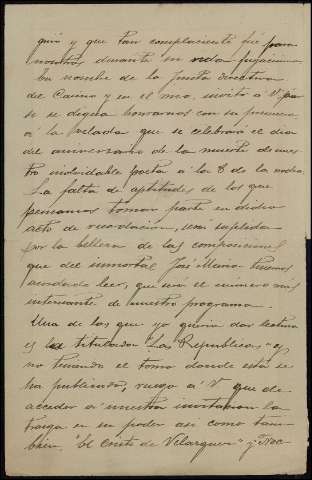 guía y que tan complaciente fué para
nosotros durante su vida
En nombre de la Junta directiva
del Casino y en el mio, invito á V. por
si se digna honrarnos con su presencia
á la velada que se celebrará el dia
del aniversario de la muerte de nues
tro inolvidable poeta á las 8 de la noche.
La falta de aptitudes de los que
pensamos tomar parte en dicho
acto de recordacion, será suplida
por la belleza de las composiciones
que del inmortal José Maria hemos
acordado leer, que será el número mas
interesante de nuestro programa.
Una de las que yo quería dar lectura
es la titulada "Las Republicas" y
no teniendo el tomo donde está se
ha publicado, ruego á V que de
acceder á nuestra invitacion la
traiga en su poder asi como tam
bien "El Cristo de Velazquez" y